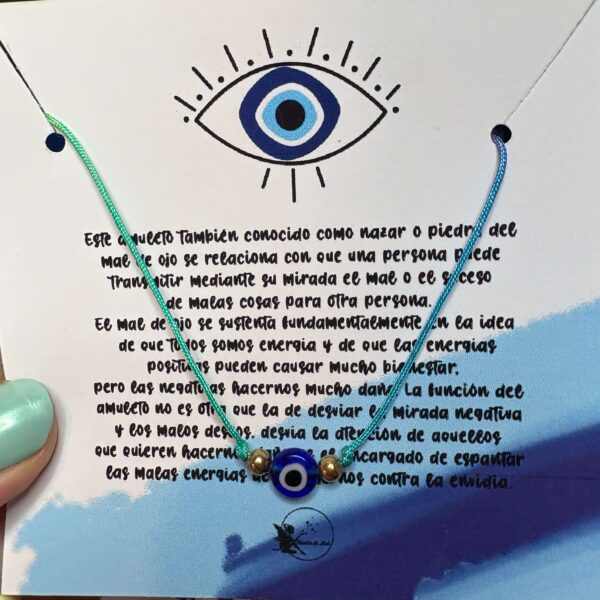 Este amuleto también conocido como nazar o piedra del
mal de ojo se relaciona con que una persona puede
transmitir mediante su mirada el mal o el suceso
de malas cosas para otra persona.
El mal de ojo se sustenta fundamentalmente en la idea
de que todos somos energia y de que las energias
positivas pueden causar mucho bienestar,
pero las negativas hacernos mucho daño. La función del
amuleto no es otra que la de desviar la mirada negativa
y los malos deseos, desvia la atención de aquellos
que quieren hacernos el encargado de espantar
las malas energias de nos contra la envidia.